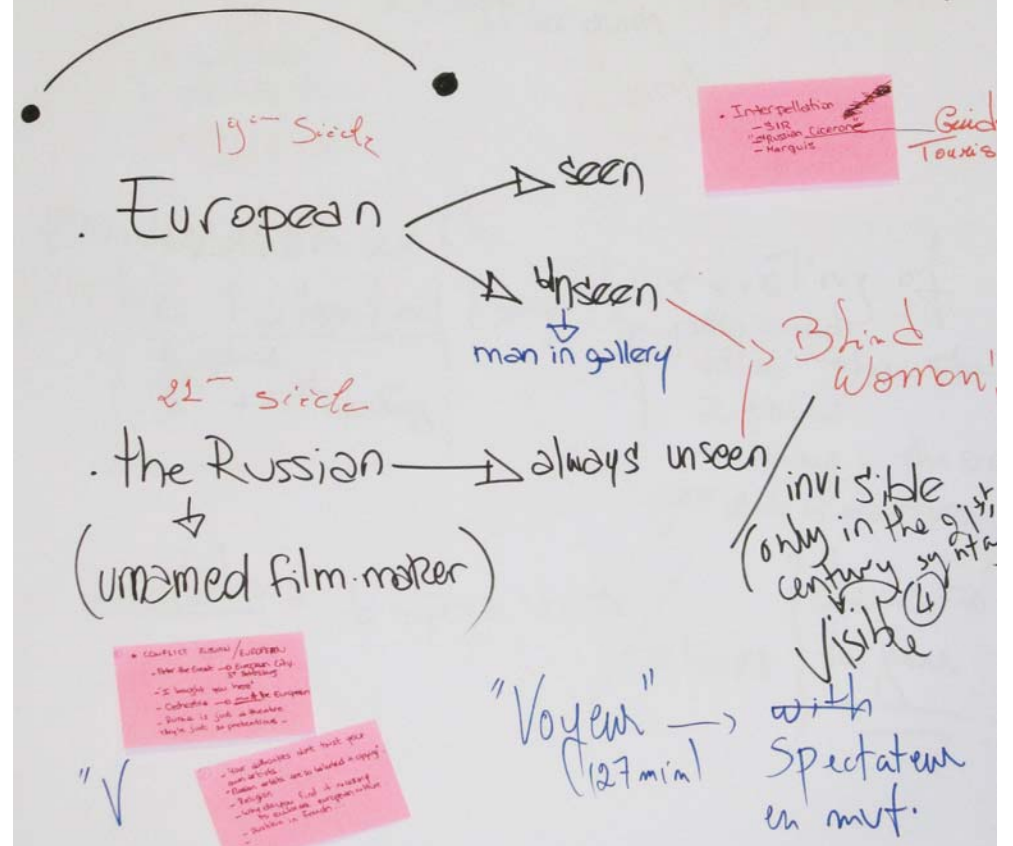 19ème Siècle
. European
seen
Unseen
man in gallery
• Interpellation
- SIR
- "Russian cicerone"
- Marquis
Guid
Touris
Blind
Woman
21 siècle
. the Russian
always unseen
(unamed film.maker)
invisible
(only in the 21st
century synta
4
Visible
• CONFLICT RUSSIAN/EUROPEAN
- Peter the Great → European City.
St Petersburg
- "I brought you here"
- Orchestra → must be European
- Russia is just a theatre
- Your authorities don't trust your
own artists.
- Russian artists are so talented in copying".
- Religion
- Why do you find it
to embrace european culture
"V
"Voyeur"
(127 min)
with
Spectateur
en mvt.